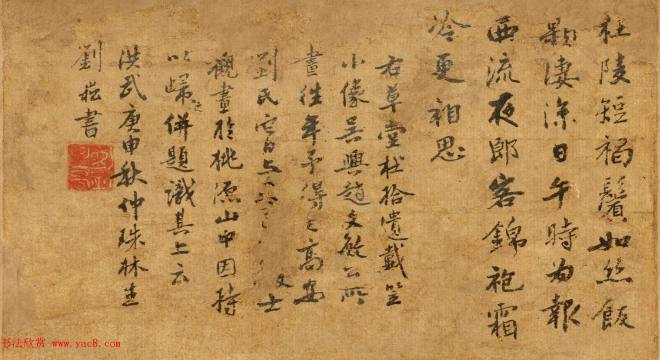 杜陵短褐鬢如絲飯
顆凄涼日午時為報
西流夜郎客錦袍霜
冷更相思
右草堂杜拾遺戴笠
小像吳興趙文敏公所
畫往年予得之高安
劉氏文士
觀畫於桃源山中因持
以歸之併題識其上云
洪武庚申秋仲珠林生
劉崧書
书法欣赏
www.yac8.com